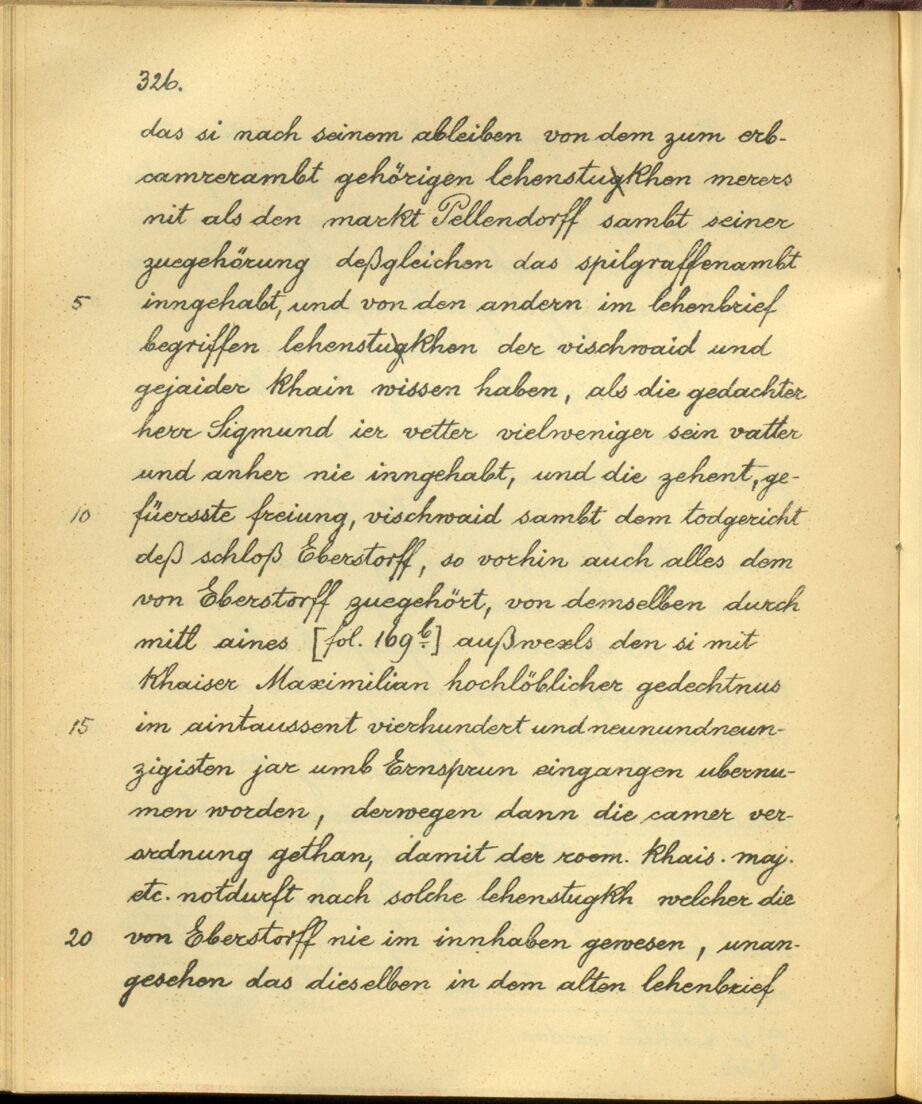 326.
das si nach seinem ableiben von dem zum erb-
camrerambt gehörigen lehenstugkhen merers
nit als den markt Pellendorff sambt seiner
zuegehörung deßgleichen das spilgraffenambt
5 inngehabt, und von den andern im lehenbrief
begriffen lehenstugkhen der vischwaid und
gejaider khain wissen haben, als die gedachter
herr Sigmund ier vetter vielweniger sein vatter
und anher nie inngehabt, und die zehent, ge-
10 füersste freiung, vischwaid sambt dem todgericht
deß schloß Eberstorff, so vorhin auch alles dem
von Eberstorff zuegehört, von demselben durch
mitl aines [fol. 169b] außwexls den si mit
khaiser Maximilian hochlöblicher gedechtnus
15 im aintaussent vierhundert und neunundneun-
zigisten jar umb Ernsprun eingangen ubernu-
men worden, derwegen dann die camer ver-
ordnung gethan, damit der room. khais. maj.
etc. notdurft nach solche lehenstugkh welcher die
20 von Eberstorff nie im innhaben gewesen, unan-
gesehen das dieselben in dem alten lehenbrief